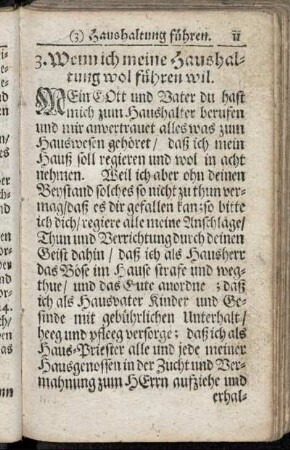 (3) Haushaltung führen. 11
3. Wenn ich meine Haushal-
tung wol führen wil.
MEin GOtt und Vater du hast
mich zum Haushalter berufen
und mir anvertrauet alles was zum
Hauswesen gehöret / daß ich mein
Hauß soll regieren und wol in acht
nehmen. Weil ich aber ohn deinen
Beystand solches so nicht zu thun ver-
mag / daß es dir gefallen kan: so bitte
ich dich / regiere alle meine Anschläge /
Thun und Verrichtung durch deinen
Geist dahin / daß ich als Hausherr
das Böse im Hause strafe und weg-
thue / und das Gute anordne ; daß
ich als Hausvater Kinder und Ge-
sinde mit gebührlichen Unterhalt /
heeg und pfleeg versorge ; daß ich als
Haus-Priester alle und jede meiner
Hausgenossen in der Zucht und Ver-
mahnung zum HErrn aufziehe und
erhal-